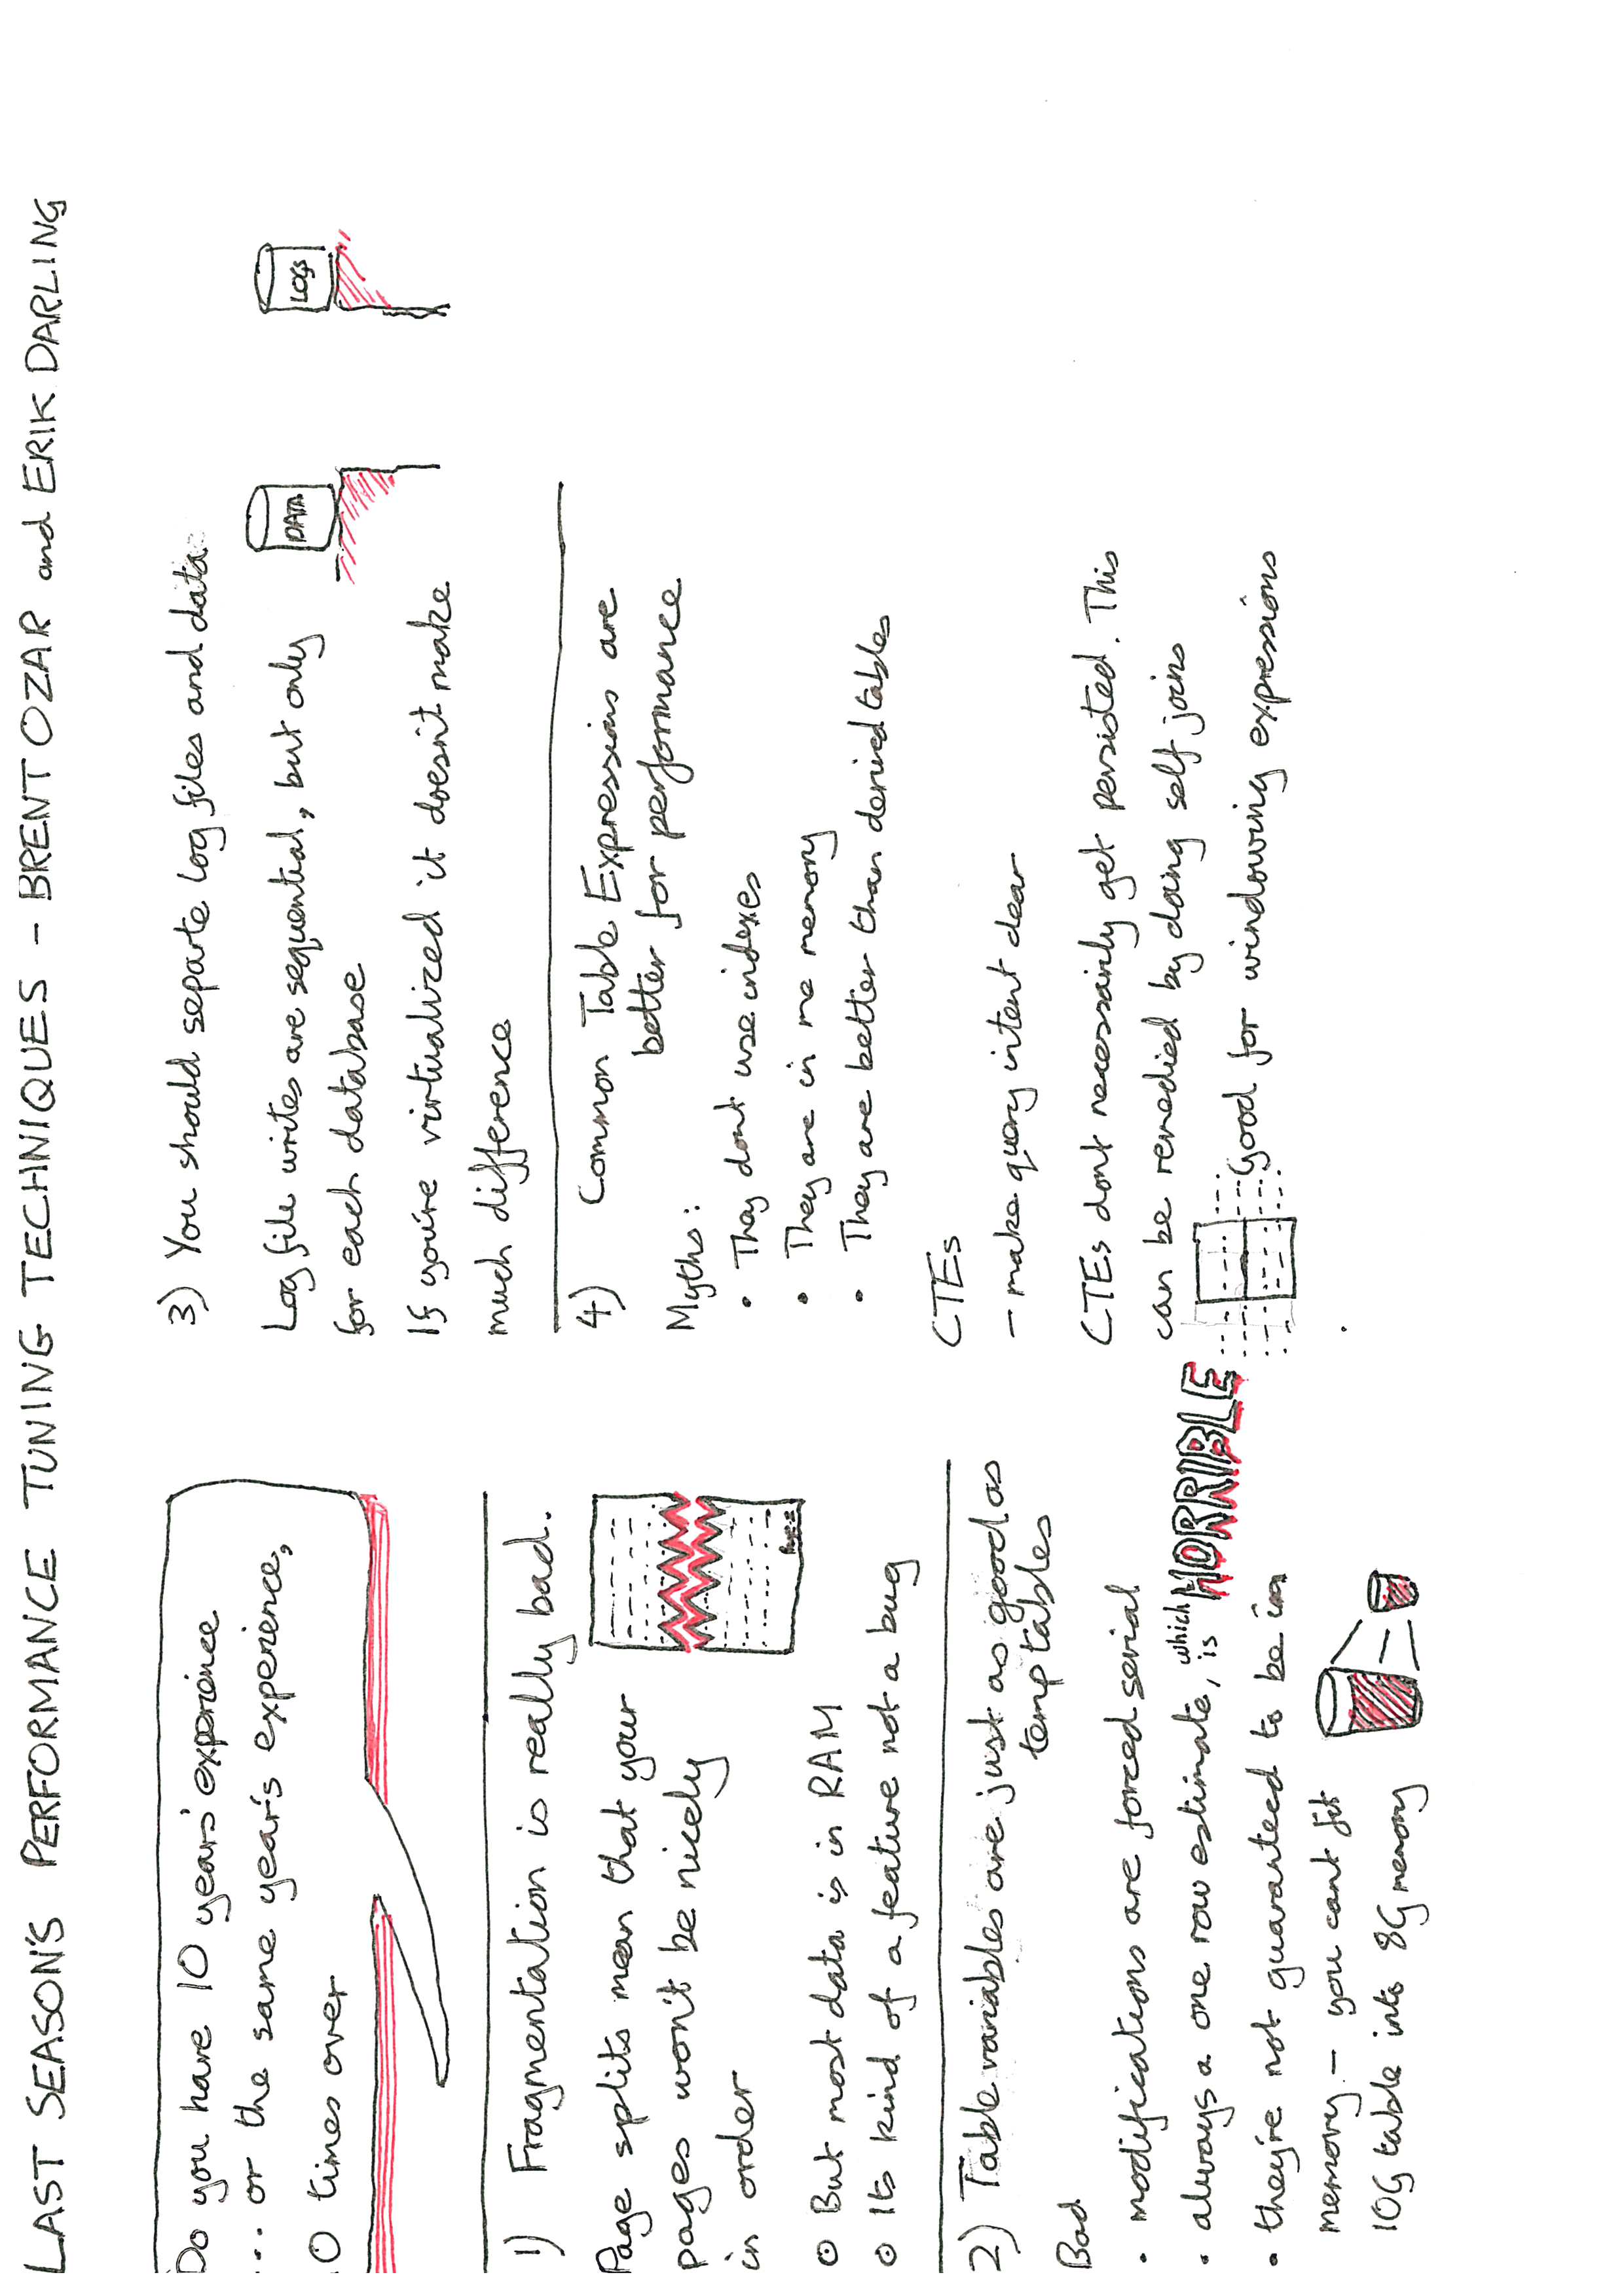 LAST SEASON'S PERFORMANCE TUNING TECHNIQUES - BRENT OZAR and ERIK DARLING
Do you have 10 years' experience
... or the same year's experience,
0 times over
1) Fragmentation is really bad.
Page splits mean that your
pages won't be nicely
in order
But most data is in RAM
Its kind of a feature not a bug
2) Table variables are just as good as
temp tables
Bad
• modifications are forced serial
• always a one row estimate, which is HORRIBLE
• they're not guaranteed to be in
memory - you cant fit
10G table into 8G memory
3) You should separte log files and data
DATA
LOGS
Log file writes are sequential, but only
for each database
If you're virtualized it doesn't make
much difference
4) Common Table Expressions are
better for performance
Myths:
• They dont use indexes
• They are in me memory
• They are better than derived tables
CTEs
- make query intent clear
CTEs dont necessarily get persisted. This
can be remedied by doing self joins
Good for windowing expressions